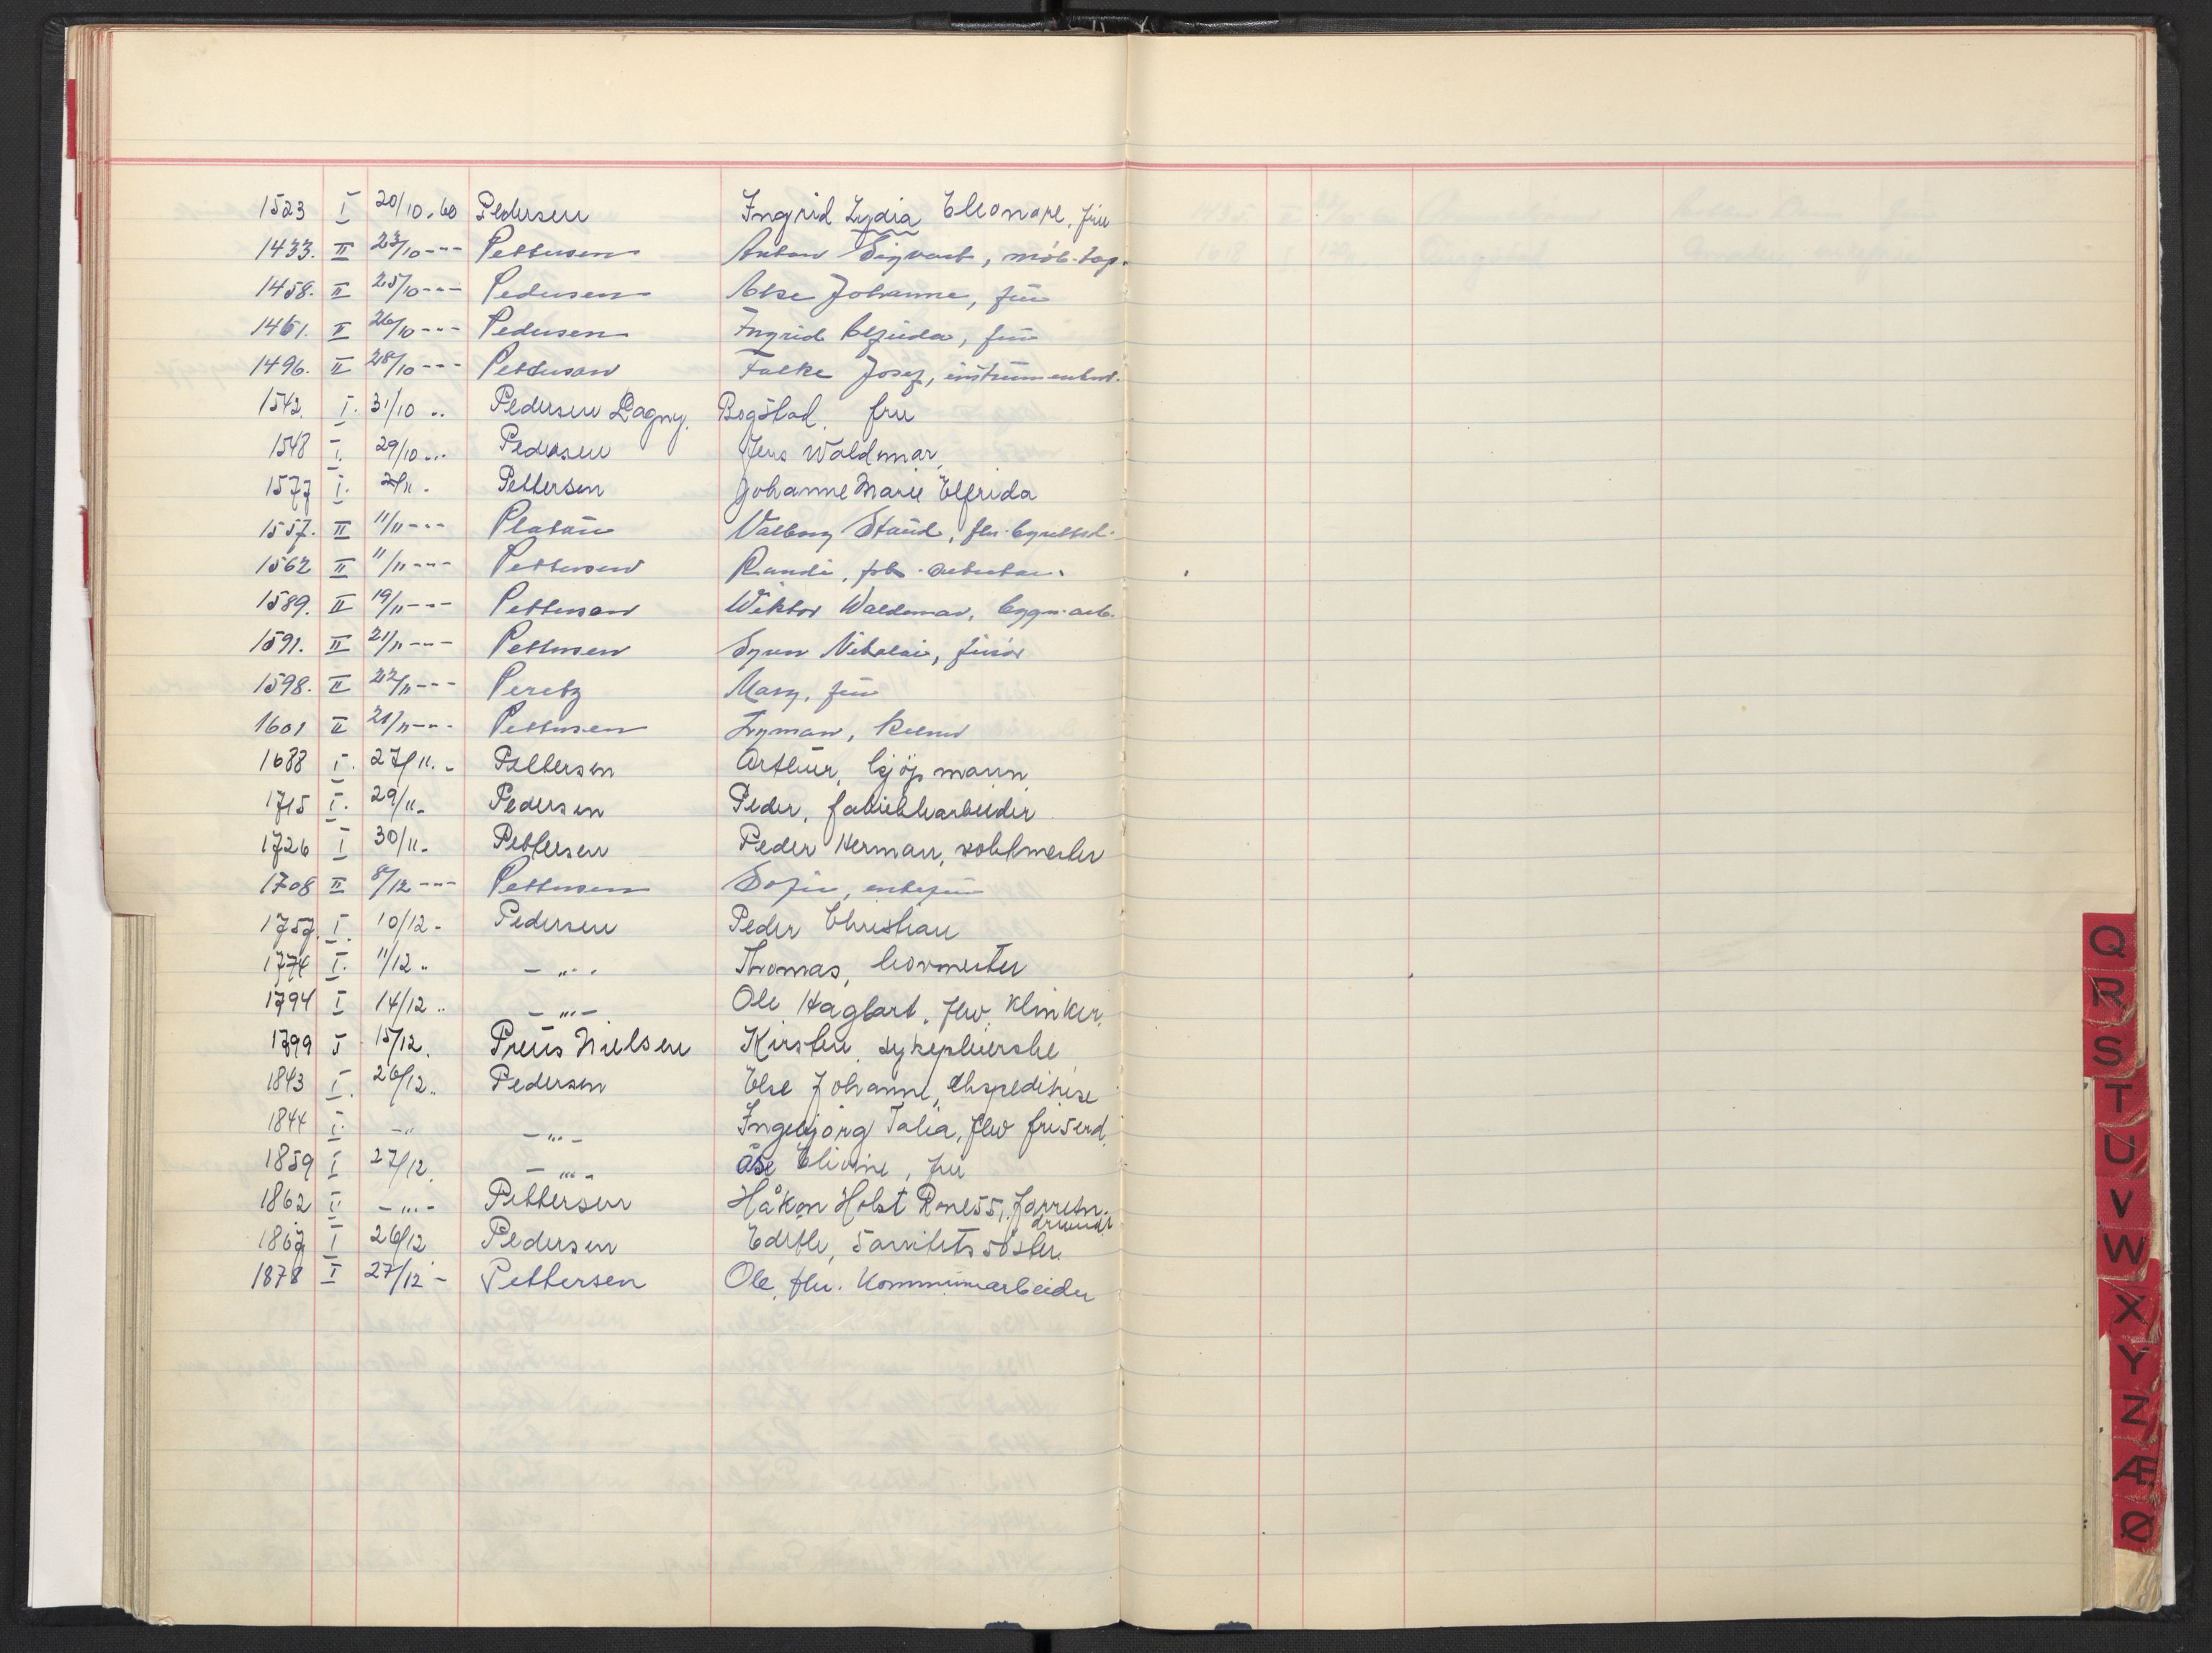 1523 I 20/10.60 Pedersen Ingrid Lydia Eleonore, fru
1433. II 23/10--- Pettersen Anton Sigvart, möb.tap.
1458. II 25/10--- Pedersen Else Johanne, frü
1461. II 26/10--- Pedersen Ingrid Elfrida, frü
1496. II 28/10--- Petterson Folke Josef, instrumentm.
1542. I. 31/10 .. Pedersen Dagny. Bogstad, fru
1548 I. 29/10... Pedersen Jens Waldmar,
1577 I. 2/11. Pettersen Johanne Marie Elfrida
1557. II 11/11--- Platoü Valborg Staüd,
1562 II 11/11--- Pettersen Randi,
1589. II 19/11--- Petterson Wiktor Waldemar, bygn.arb.
1591. II 21/11--- Pettersen Nikolai,
1598. II 22/11--- Peretz Mary, frü
1601 II 21/11--- Pettersen
1688 I. 27/11.. Pettersen Arthür, kjöpmann
1715 I. 29/11. Pedersen Peder, fabrikkarbeider
1726 I 30/11. Pettersen Peder Herman,
1708 II 8/12--- Pettersen Sofie, enkefrü
1757. I. 10/12. Pedersen Peder Christian
1774 I. 11/12 .. -"- Thomas, hovmester
1794 I 14/12.. -"- Ole Hagbart, flw. Klinker.
1799 I 15/12. Preüs Nielsen Kirsten, sykepleierske
1843 I. 26/12.. Pedersen Else Johanne, ekspeditrise
1844 I. -" -"- Ingebjörg Talia, flw
1859 I 27/12. -"- åse Elivine, fru
1862 I -"- Pettersen Håkon Holst Roness, forretn.
drivende
1867 I 26/12 Pedersen Edithe, Sanitetssöster
1878 I 27/12 - Pettersen Ole, flu. Kommunearbeider
Q
R
S
T
U
V
W
X
Y
Z
Æ
Ø